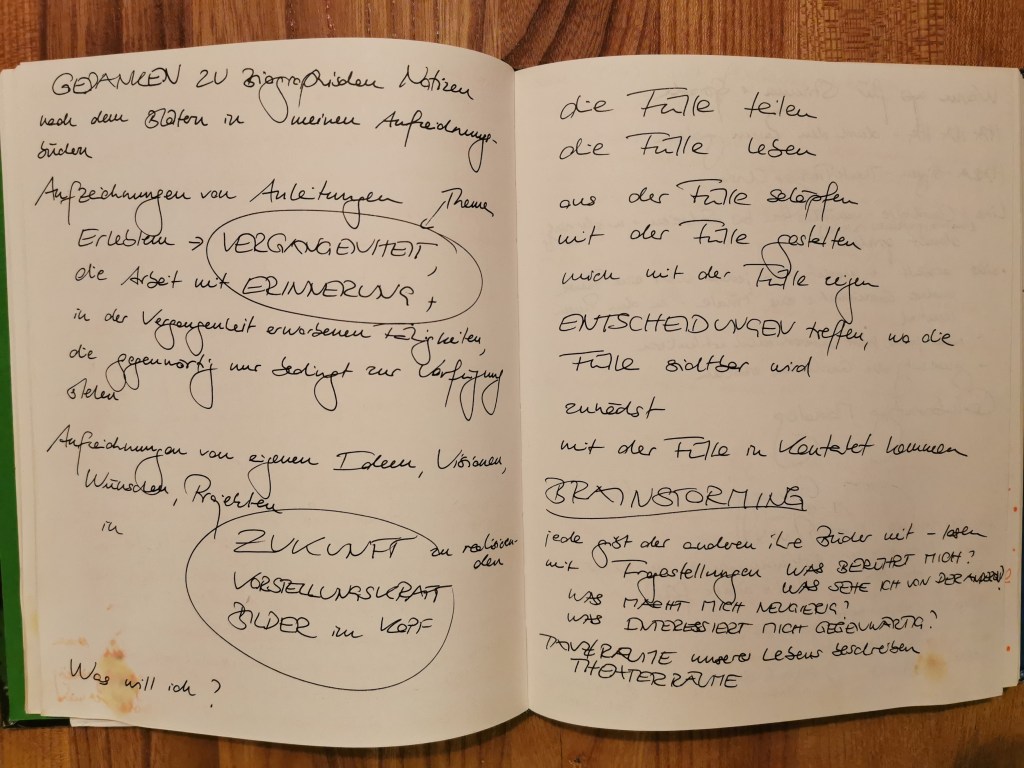 GEDANKEN ZU Biographischen Notizen
nach dem Blättern in meinen Aufzeichnungs-
büchern
Aufzeichnungen von Anleitungen
Themen
Erlebtem → VERGANGENHEIT,
die Arbeit mit ERINNERUNG +
in der Vergangenheit erworbenen Fähigkeiten,
die gegenwärtig nur bedingt zur Verfügung
stehen
Aufzeichnungen von eigenen Ideen, Visionen,
Wünschen, Projekten
in
ZUKUNFT zu realisieren-
den
VORSTELLUNGSKRAFT
BILDER im KOPF
Was will ich?
die Fülle teilen
die Fülle leben
aus der Fülle schöpfen
mit der Fülle gestalten
mich mit der Fülle zeigen
ENTSCHEIDUNGEN treffen, wo die
Fülle sichtbar wird
zunächst
mit der Fülle in Kontakt kommen
BRAINSTORMING
jede gibt der anderen ihre Bücher mit - lesen
mit Fragestellungen WAS BERÜHRT MICH?
WAS SEHE ICH VON DER ANDEREN?
WAS MACHT MICH NEUGIERIG?
WAS INTERESSIERT MICH GEGENWÄRTIG?
TANZRÄUME unserer Lebens beschreiben
THEATERRÄUME